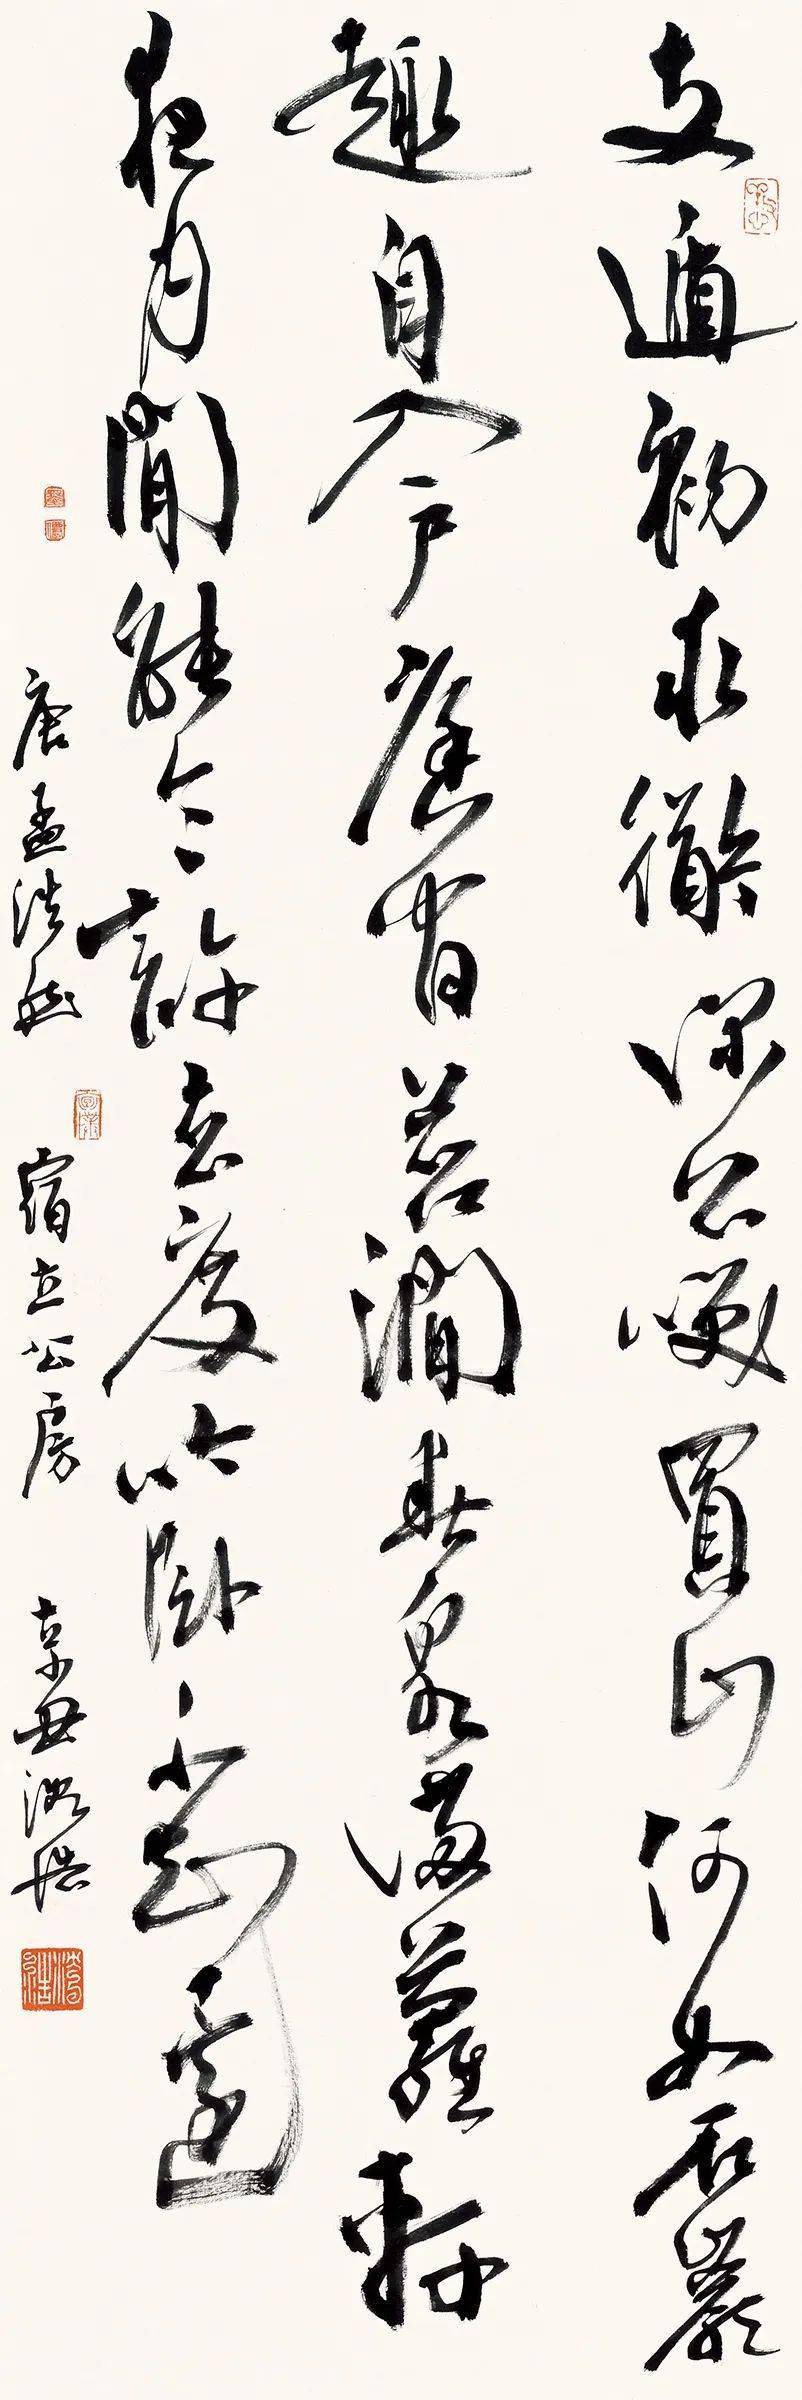 支遁初求衜深公咲買山何如石巖
趣自入戶庭間苔澗春泉滿蘿軒
夜月閒能令許玄度吟臥不知還
唐孟浩然 宿立公房 辛丑